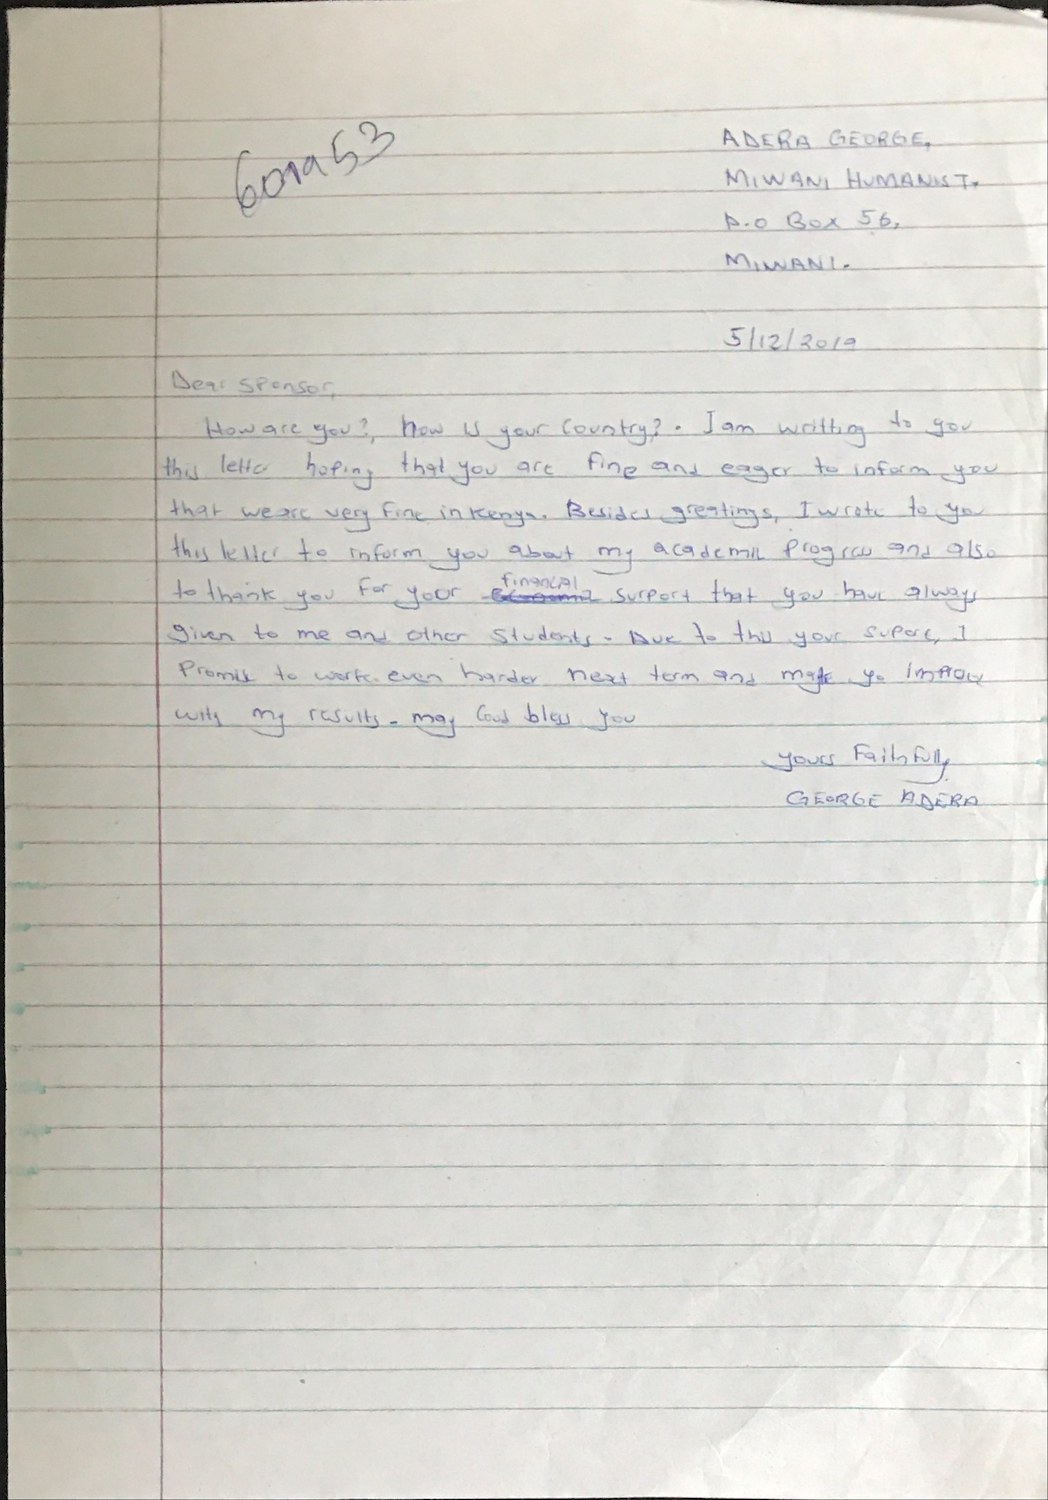 ADERA GEORGE,
MIWANI HUMANIST.
P.O Box 56,
MIWANI.
5/12/2019
Dear Sponsor,
How are you?, how is your Country?. I am writting to you
this letter hoping that you are fine and eager to inform you
that we are very fine in Kenya. Besides greetings, I wrote to you
this letter to inform you about my academic Progress and also
to thank you for your financial surport that you have always
given to me and other students. Due to this your suport, I
Promise to work even harder next term and make yo
with my results. may God bless you
yours Faithfully
GEORGE ADERA